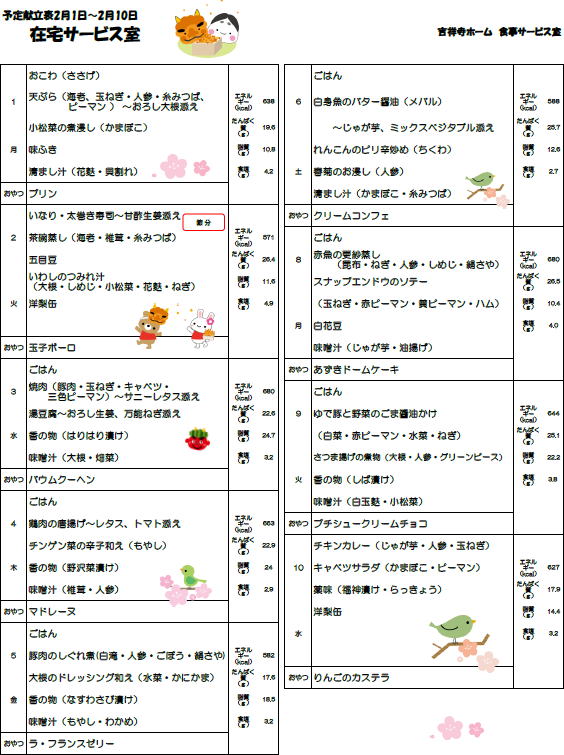 予定献立表2月1日～2月10日
在宅サービス室
吉祥寺ホーム　食事サービス室
1
月
おこわ（ささげ）
天ぷら（海老、玉ねぎ・人参・糸みつば、
ピーマン）～おろし大根添え
小松菜の煮浸し（かまぼこ）
味ふき
清まし汁（花麩・貝割れ）
エネルギー(kcal) 638
たんぱく質(g) 19.6
脂質(g) 10.8
食塩(g) 4.2
おやつ プリン
2
火
いなり・太巻き寿司～甘酢生姜添え
節分
茶碗蒸し（海老・椎茸・糸みつば）
五目豆
いわしのつみれ汁
（大根・しめじ・小松菜・花麩・ねぎ）
洋梨缶
エネルギー(kcal) 571
たんぱく質(g) 26.4
脂質(g) 11.6
食塩(g) 4.9
おやつ 玉子ボーロ
3
水
ごはん
焼肉（豚肉・玉ねぎ・キャベツ・
三色ピーマン）～サニーレタス添え
湯豆腐～おろし生姜、万能ねぎ添え
香の物（はりはり漬け）
味噌汁（大根・畑菜）
エネルギー(kcal) 680
たんぱく質(g) 22.6
脂質(g) 24.7
食塩(g) 3.2
おやつ バウムクーヘン
4
木
ごはん
鶏肉の唐揚げ～レタス、トマト添え
チンゲン菜の辛子和え（もやし）
香の物（野沢菜漬け）
味噌汁（椎茸・人参）
エネルギー(kcal) 663
たんぱく質(g) 22.9
脂質(g) 24
食塩(g) 2.9
おやつ マドレーヌ
5
金
ごはん
豚肉のしぐれ煮(白滝・人参・ごぼう・絹さや)
大根のドレッシング和え（水菜・かにかま）
香の物（なすわさび漬け）
味噌汁（もやし・わかめ）
エネルギー(kcal) 582
たんぱく質(g) 17.6
脂質(g) 18.5
食塩(g) 3.2
おやつ ラ・フランスゼリー
6
土
ごはん
白身魚のバター醤油（メバル）
～じゃが芋、ミックスベジタブル添え
れんこんのピリ辛炒め（ちくわ）
春菊のお浸し（人参）
清まし汁（かまぼこ・糸みつば）
エネルギー(kcal) 588
たんぱく質(g) 25.7
脂質(g) 12.6
食塩(g) 2.7
おやつ クリームコンフェ
8
月
ごはん
赤魚の更紗蒸し
（昆布・ねぎ・人参・しめじ・絹さや）
スナップエンドウのソテー
（玉ねぎ・赤ピーマン・黄ピーマン・ハム）
白花豆
味噌汁（じゃが芋・油揚げ）
エネルギー(kcal) 680
たんぱく質(g) 26.5
脂質(g) 10.4
食塩(g) 4.0
おやつ あずきドームケーキ
9
火
ごはん
ゆで豚と野菜のごま醤油かけ
（白菜・赤ピーマン・水菜・ねぎ）
さつま揚げの煮物（大根・人参・グリーンピース）
香の物（しば漬け）
味噌汁（白玉麩・小松菜）
エネルギー(kcal) 644
たんぱく質(g) 25.1
脂質(g) 22.2
食塩(g) 3.8
おやつ プチシュークリームチョコ
10
水
チキンカレー（じゃが芋・人参・玉ねぎ）
キャベツサラダ（かまぼこ・ピーマン）
薬味（福神漬け・らっきょう）
洋梨缶
エネルギー(kcal) 627
たんぱく質(g) 17.9
脂質(g) 14.4
食塩(g) 3.2
おやつ りんごのカステラ